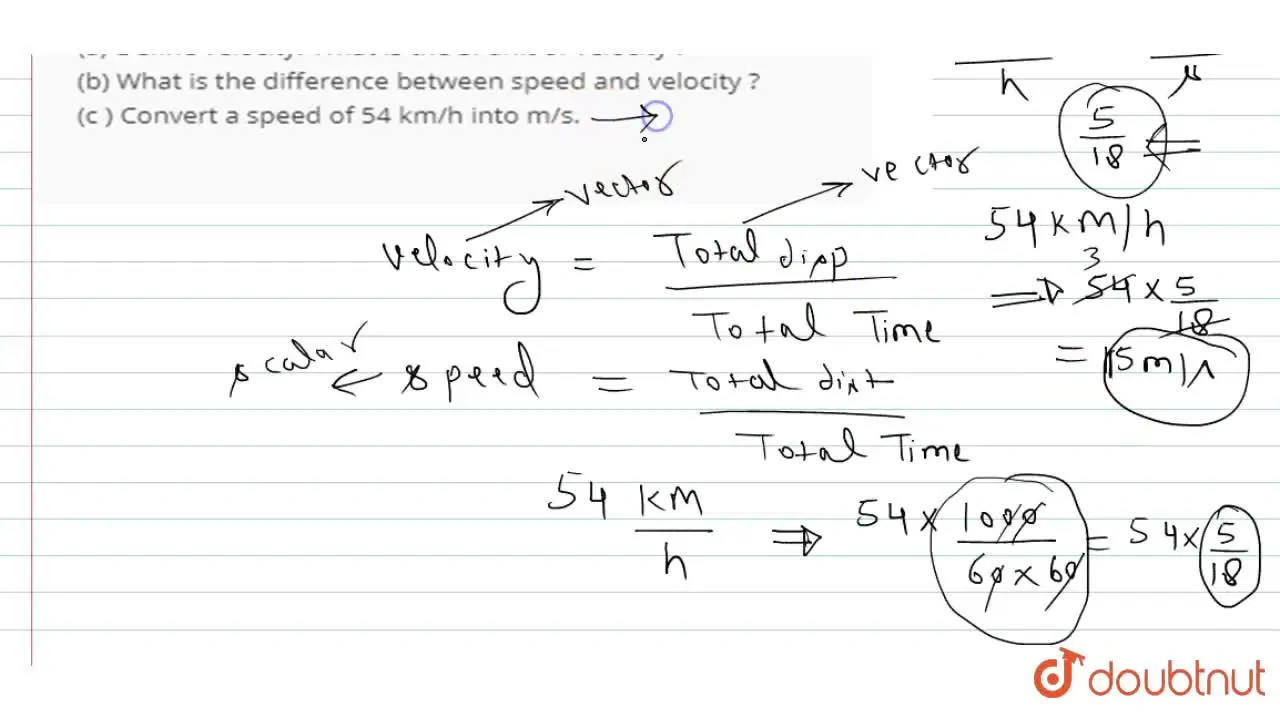 (b) What is the difference between speed and velocity ?
(c ) Convert a speed of 54 km/h into m/s.
h
5
18
54 KM/h
3
⇒ 54 × 5
18
= 15 m/s
vector
vector
velocity = Total disp
Total Time
scalar ← speed = Total dist
Total Time
54 KM
h
⇒ 54 × 1000
60 × 60
= 54 × 5
18
doubtnut